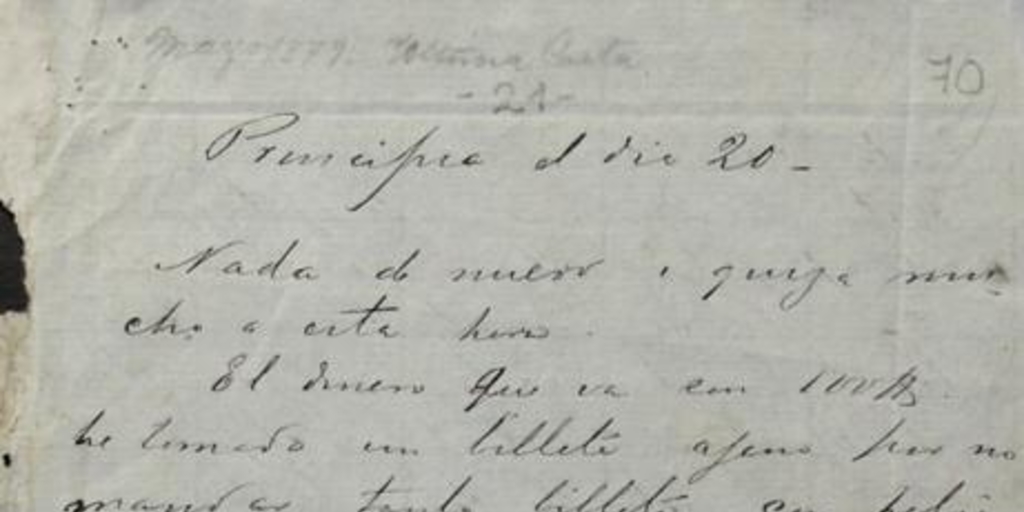 Mayo 1879. Ultima Carta
70
- 21 -
Principia el dia 20 -
Nada de nuevo i quiza mu-
cho a esta hora.
El dinero que va son 100 $.
he tomado un billete ajeno por no
mandar tanto billete